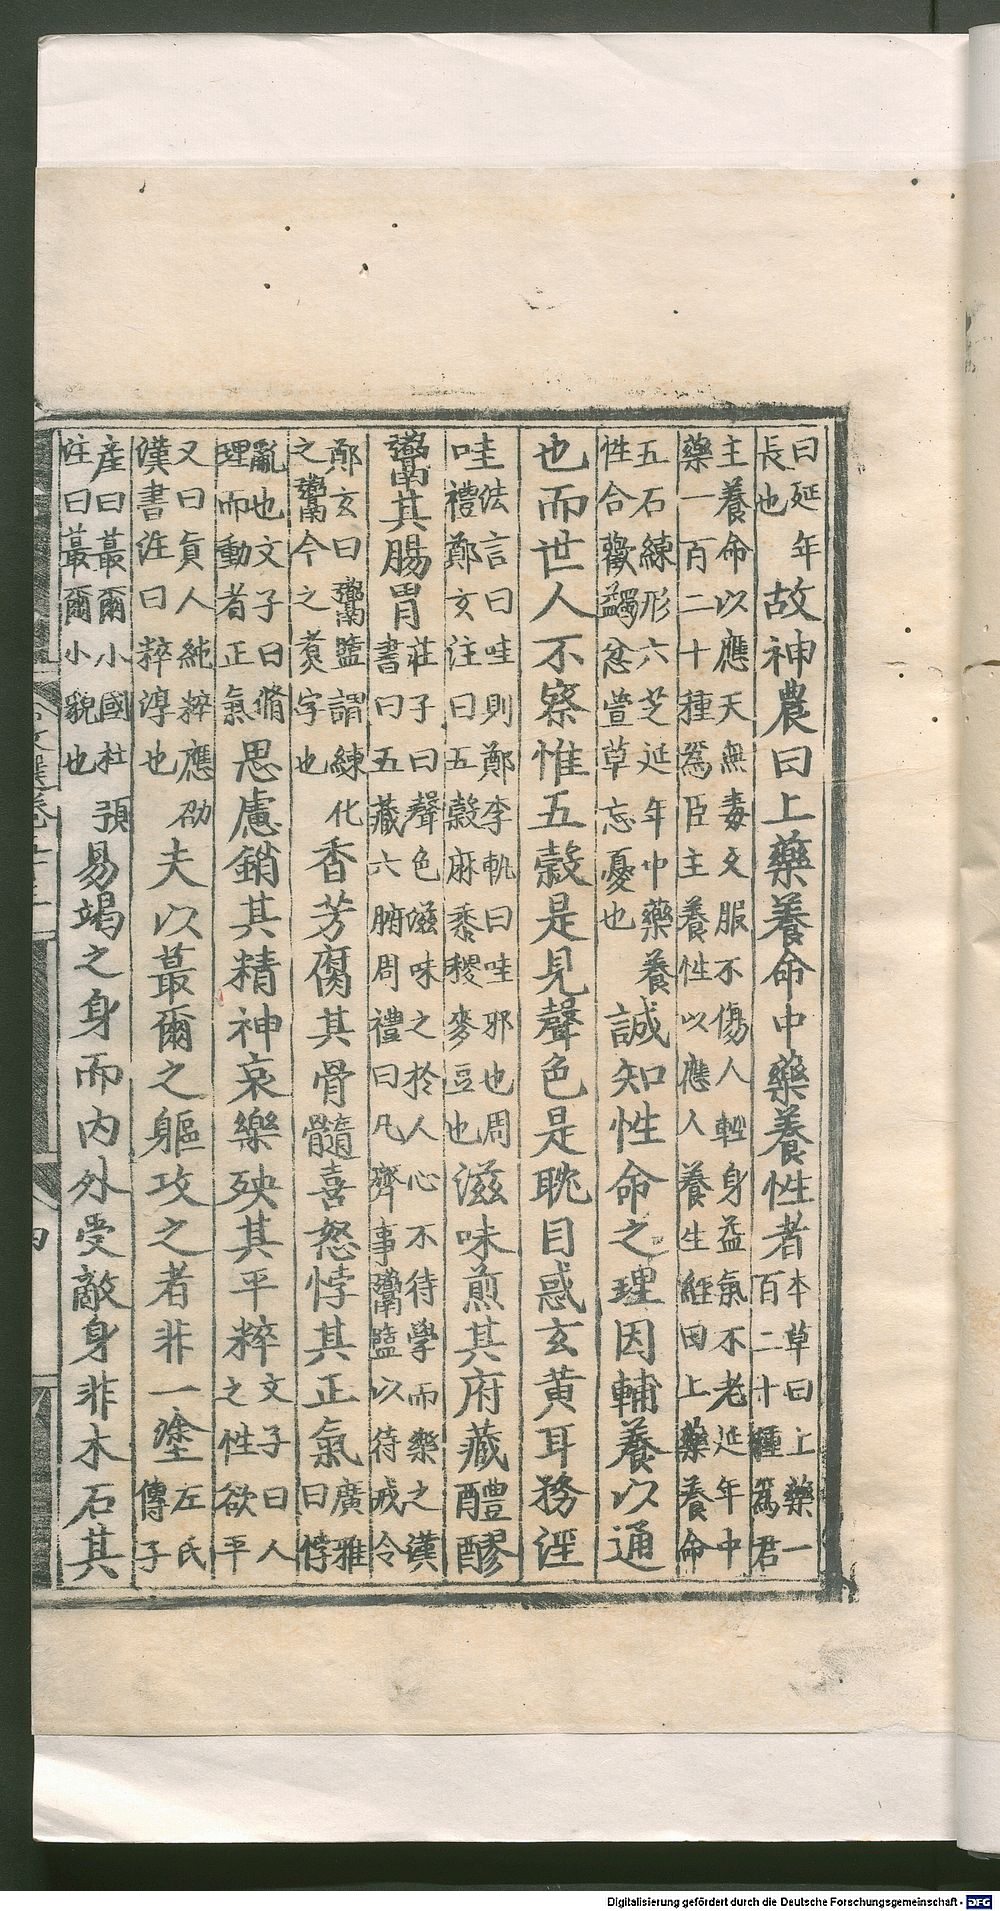 曰延年長也故神農曰上藥養命中藥養性者本草曰上藥一百二十種爲君
主養命以應天無毒文服不傷人輕身益氣不老延年中藥一百二十種爲臣主養性以應人養生經曰上藥養命
五石練形六芝延年中藥養性合歡蠲忿萱草忘憂也誠知性命之理因輔養以通
也而世人不察惟五穀是見聲色是耽目惑玄黃耳務淫
哇法言曰哇則鄭李軌曰哇邪也周禮鄭玄注曰五穀麻黍稷麥豆也滋味煎其府藏醴醪
鬻其腸胃莊子曰聲色滋味之於人心不待學而樂之漢書曰五藏六腑周禮曰凡齊事鬻盬以待戒令
鄭玄曰鬻盬謂練化之鬻今之煑字也香芳腐其骨髓喜怒悖其正氣廣雅曰悖
亂也文子曰脩理而動者正氣思慮銷其精神哀樂殃其平粹文子曰人之性欲平
又曰眞人純粹應劭漢書注曰粹淳也夫以蕞爾之軀攻之者非一塗左氏傳子
產曰蕞爾小國杜預注曰蕞爾小貌也易竭之身而內外受敵身非木石其
Digitalisierung gefördert durch die Deutsche Forschungsgemeinschaft - DFG